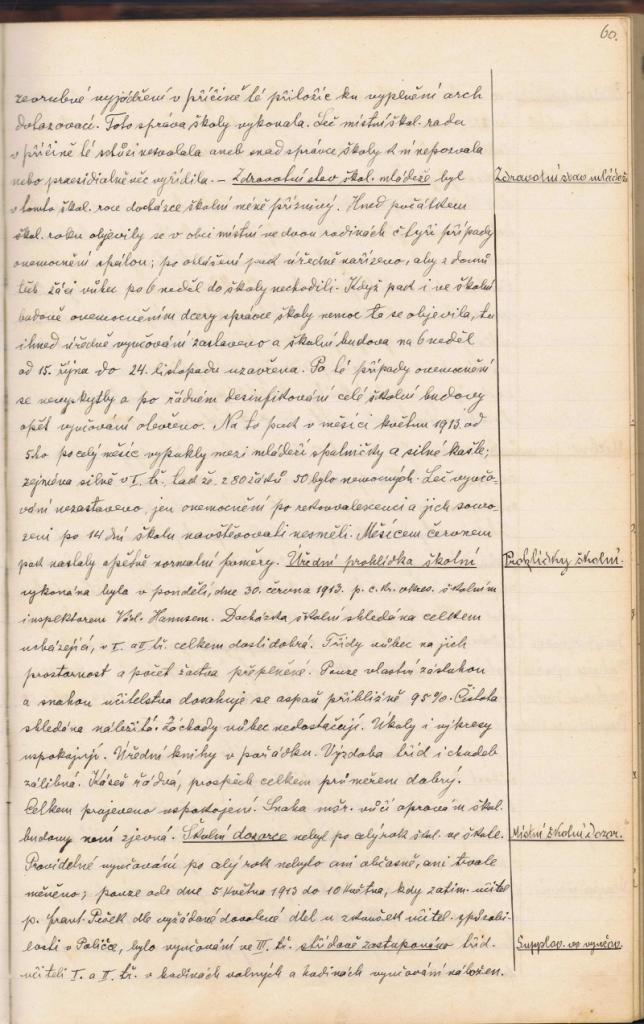 60.
zevrubné vyjádření v příčině té přiložic ku vyplnění arch
dotazovací. Toto správa školy vykonala. Leč místní škol. rada
v příčině té schůzi nesvolala aneb snad správce školy k ní nepozvala
nebo praesidialně věc vyřídila. – Zdravotní stav škol. mládeže byl
Zdravotní stav mládeže
v tomto škol. roce docházce školní méně příznivý. Hned počátkem
škol. roku objevily se v obci místní ve dvou rodinách čtyři případy
onemocnění spálou; po ohlášení pad úředně nařízeno, aby z domů
těch žáci vůbec po 6 neděl do školy nechodili. Když pad i ve školní
budově onemocněním dcery správce školy nemoc ta se objevila, tu
ihned úředně vyučování zastaveno a školní budova na 6 neděl
od 15. října do 24. listopadu uzavřena. Po té případy onemocnění
se nevyskytly a po řádném desinfikování celé školní budovy
opět vyučování otevřeno. Na to pad v měsíci květnu 1913. od
5. ho po celý měsíc vypukly mezi mládeží spalničky a silné kašle;
zejména silně v I. tř., tad že z 80 žáků 50 bylo nemocných. Leč vyučo-
vání nezastaveno, jen onemocnění po rekonvalescenci a jich souro-
zeni po 14 dní školu navštěvovati nesměli. Měsícem červnem
pad nastaly opětně normalní poměry. Úřední prohlídka školní
Prohlídky školní.
vykonána byla v pondělí, dne 30. června 1913. p. c. kr. okres. školním
inspektorem Hanusem. Docházka školní shledána celkem
v I. a II tř. celkem dosti dobrá. Třídy vůbec na jich
prostornost a počet žactva přeplněné. Pouze vlastní zásluhou
a snahou učitelstva dosahuje se aspoň přibližně 95%. Čistota
shledána náležitá. Záchody vůbec nedostačují. Úkoly i výkresy
uspokojují. Úřední knihy v pořádku. Výzdoba tříd i chodeb
zálibná. Kázeň řádná, prospěch celkem průměrem dobrý.
Celkem projeveno uspokojení. Snaha mšr. vůči opravám škol.
budovy není zjevná. Školní dozorce nebyl po celý rok škol. ve škole.
Místní školní dozor.
Pravidelné vyučování po celý rok nebylo ani občasně, ani trvale
měněno; pouze ode dne 5 května 1913 do 10 května, kdy zatím. učitel
p. Frant. dle vyžádané dovolené dlel u zkoušek učitel. způsobi-
losti v Poličce, bylo vyučování ve III. tř. střídavě zastupováno tříd.
Supplov. ve vyučov.
učiteli I. a II. tř. v hodinách volných a hodinách vyučování nábožen.